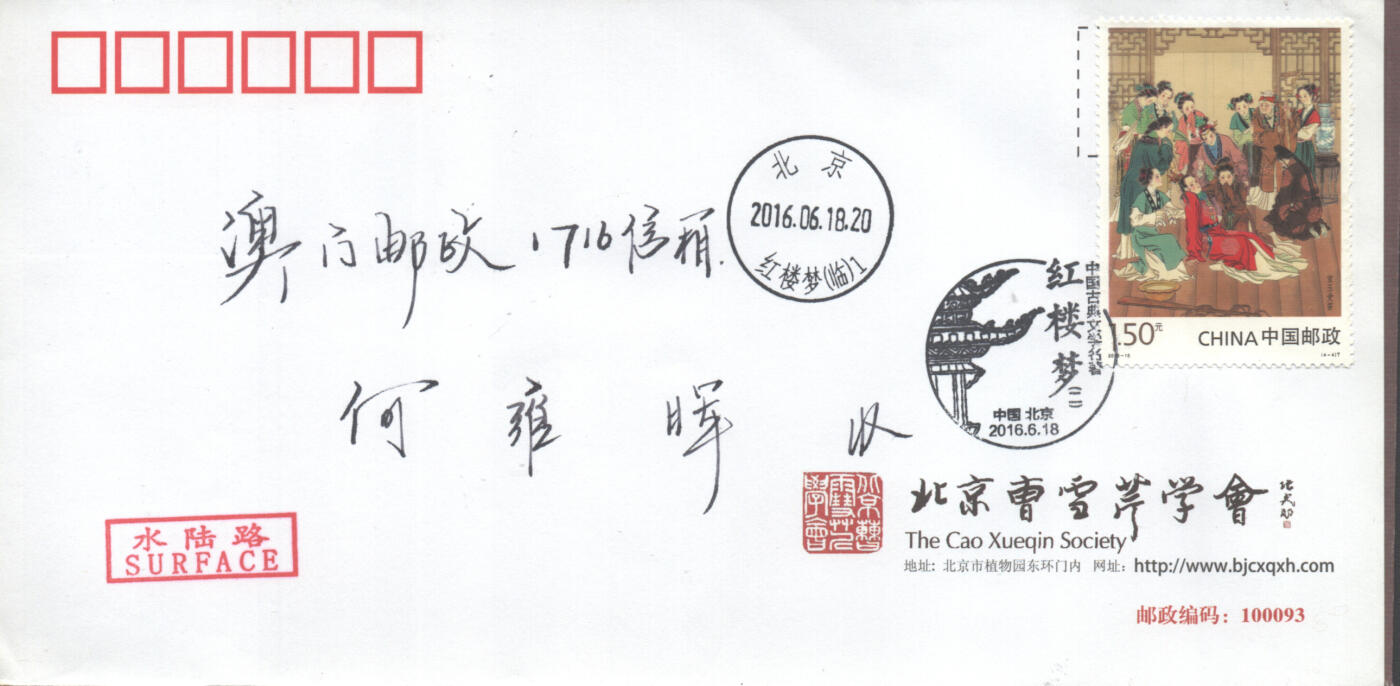 澳门邮政1716信箱.
何雍晖 收
北京
2016.06.18.20
红楼梦(临)1
中国古典文学名著
红楼梦(二)
中国 北京
2016.6.18
1.50元
CHINA中国邮政
水陆路
SURFACE
北京曹雪芹学會
北京曹雪芹学會
The Cao Xueqin Society
地址: 北京市植物园东环门内 网址: http://www.bjcxqxh.com
邮政编码: 100093